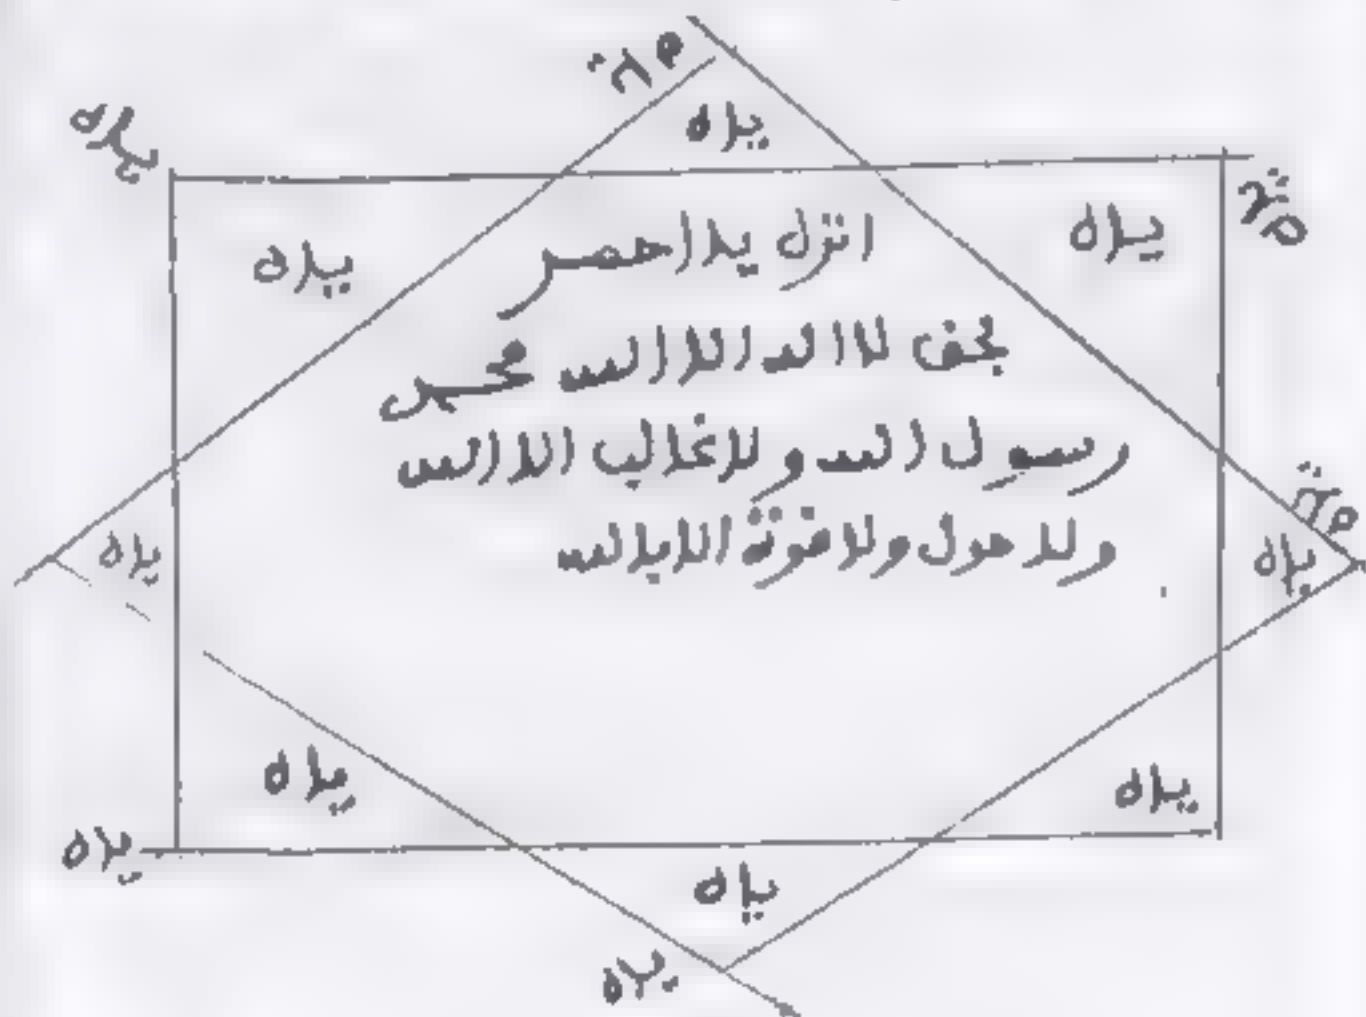 يلاه
يلاه
يلاه
يلاه
يلاه
انزل يلا احصر
بحق لا اله الا الله محمد
رسول الله ولا غالب الا الله
ولا حول ولا قوة الا بالله
يلاه
يلاه
يلاه
يلاه
يلاه
يلاه
يلاه